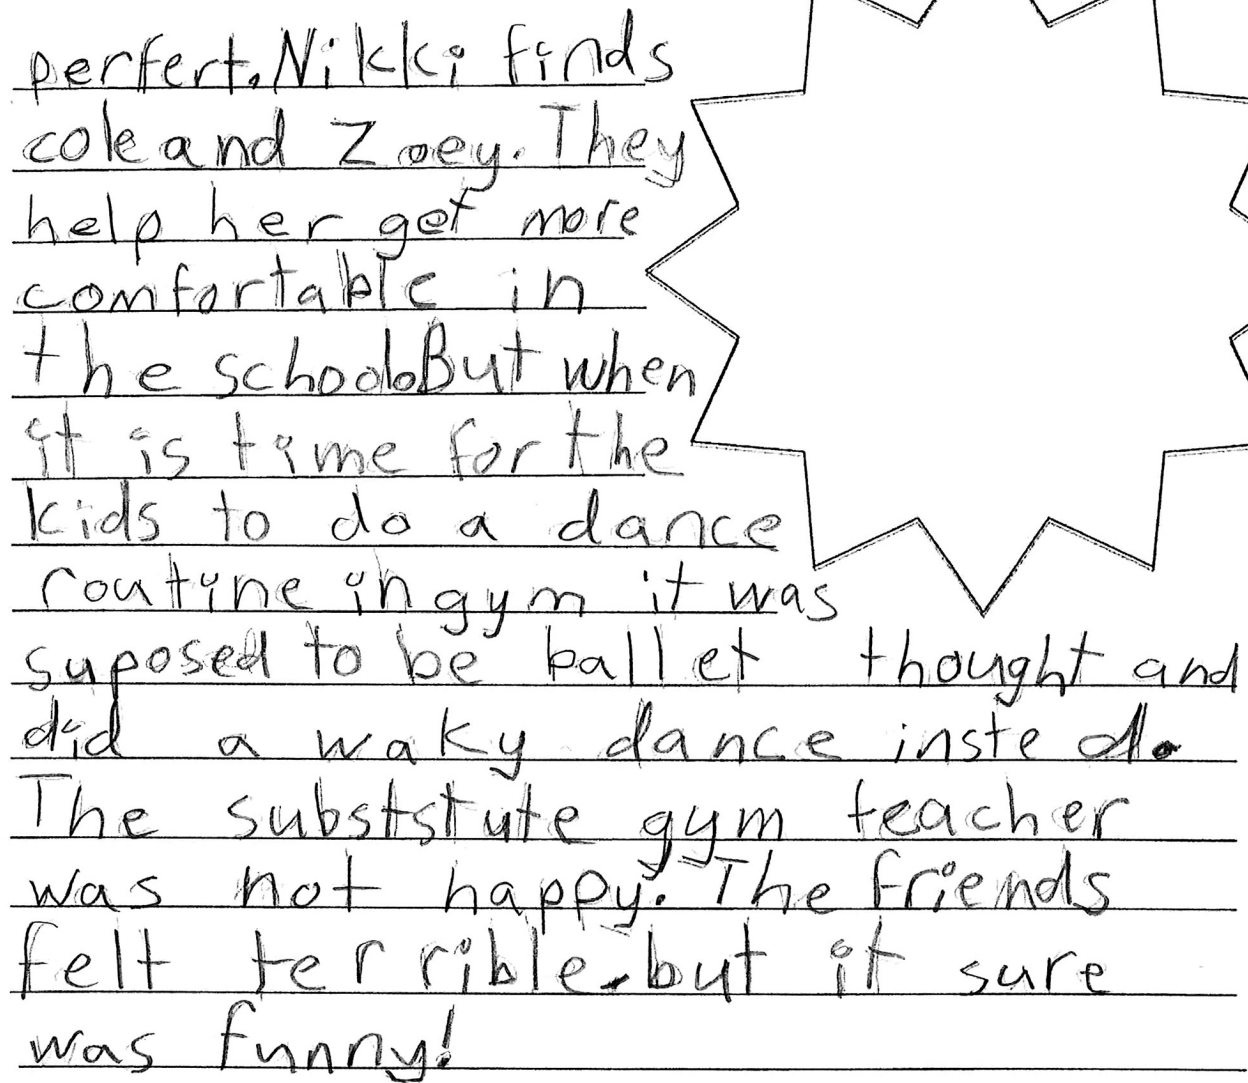 perfert. Nikki finds
cole and Zoey. They
help her get more
comfortable in
the school. But when
it is time for the
kids to do a dance
routine in gym it was
suposed to be ballet thought and
did a waky dance insted.
The subststute gym teacher
was not happy. The friends
felt terrible. but it sure
was funny!